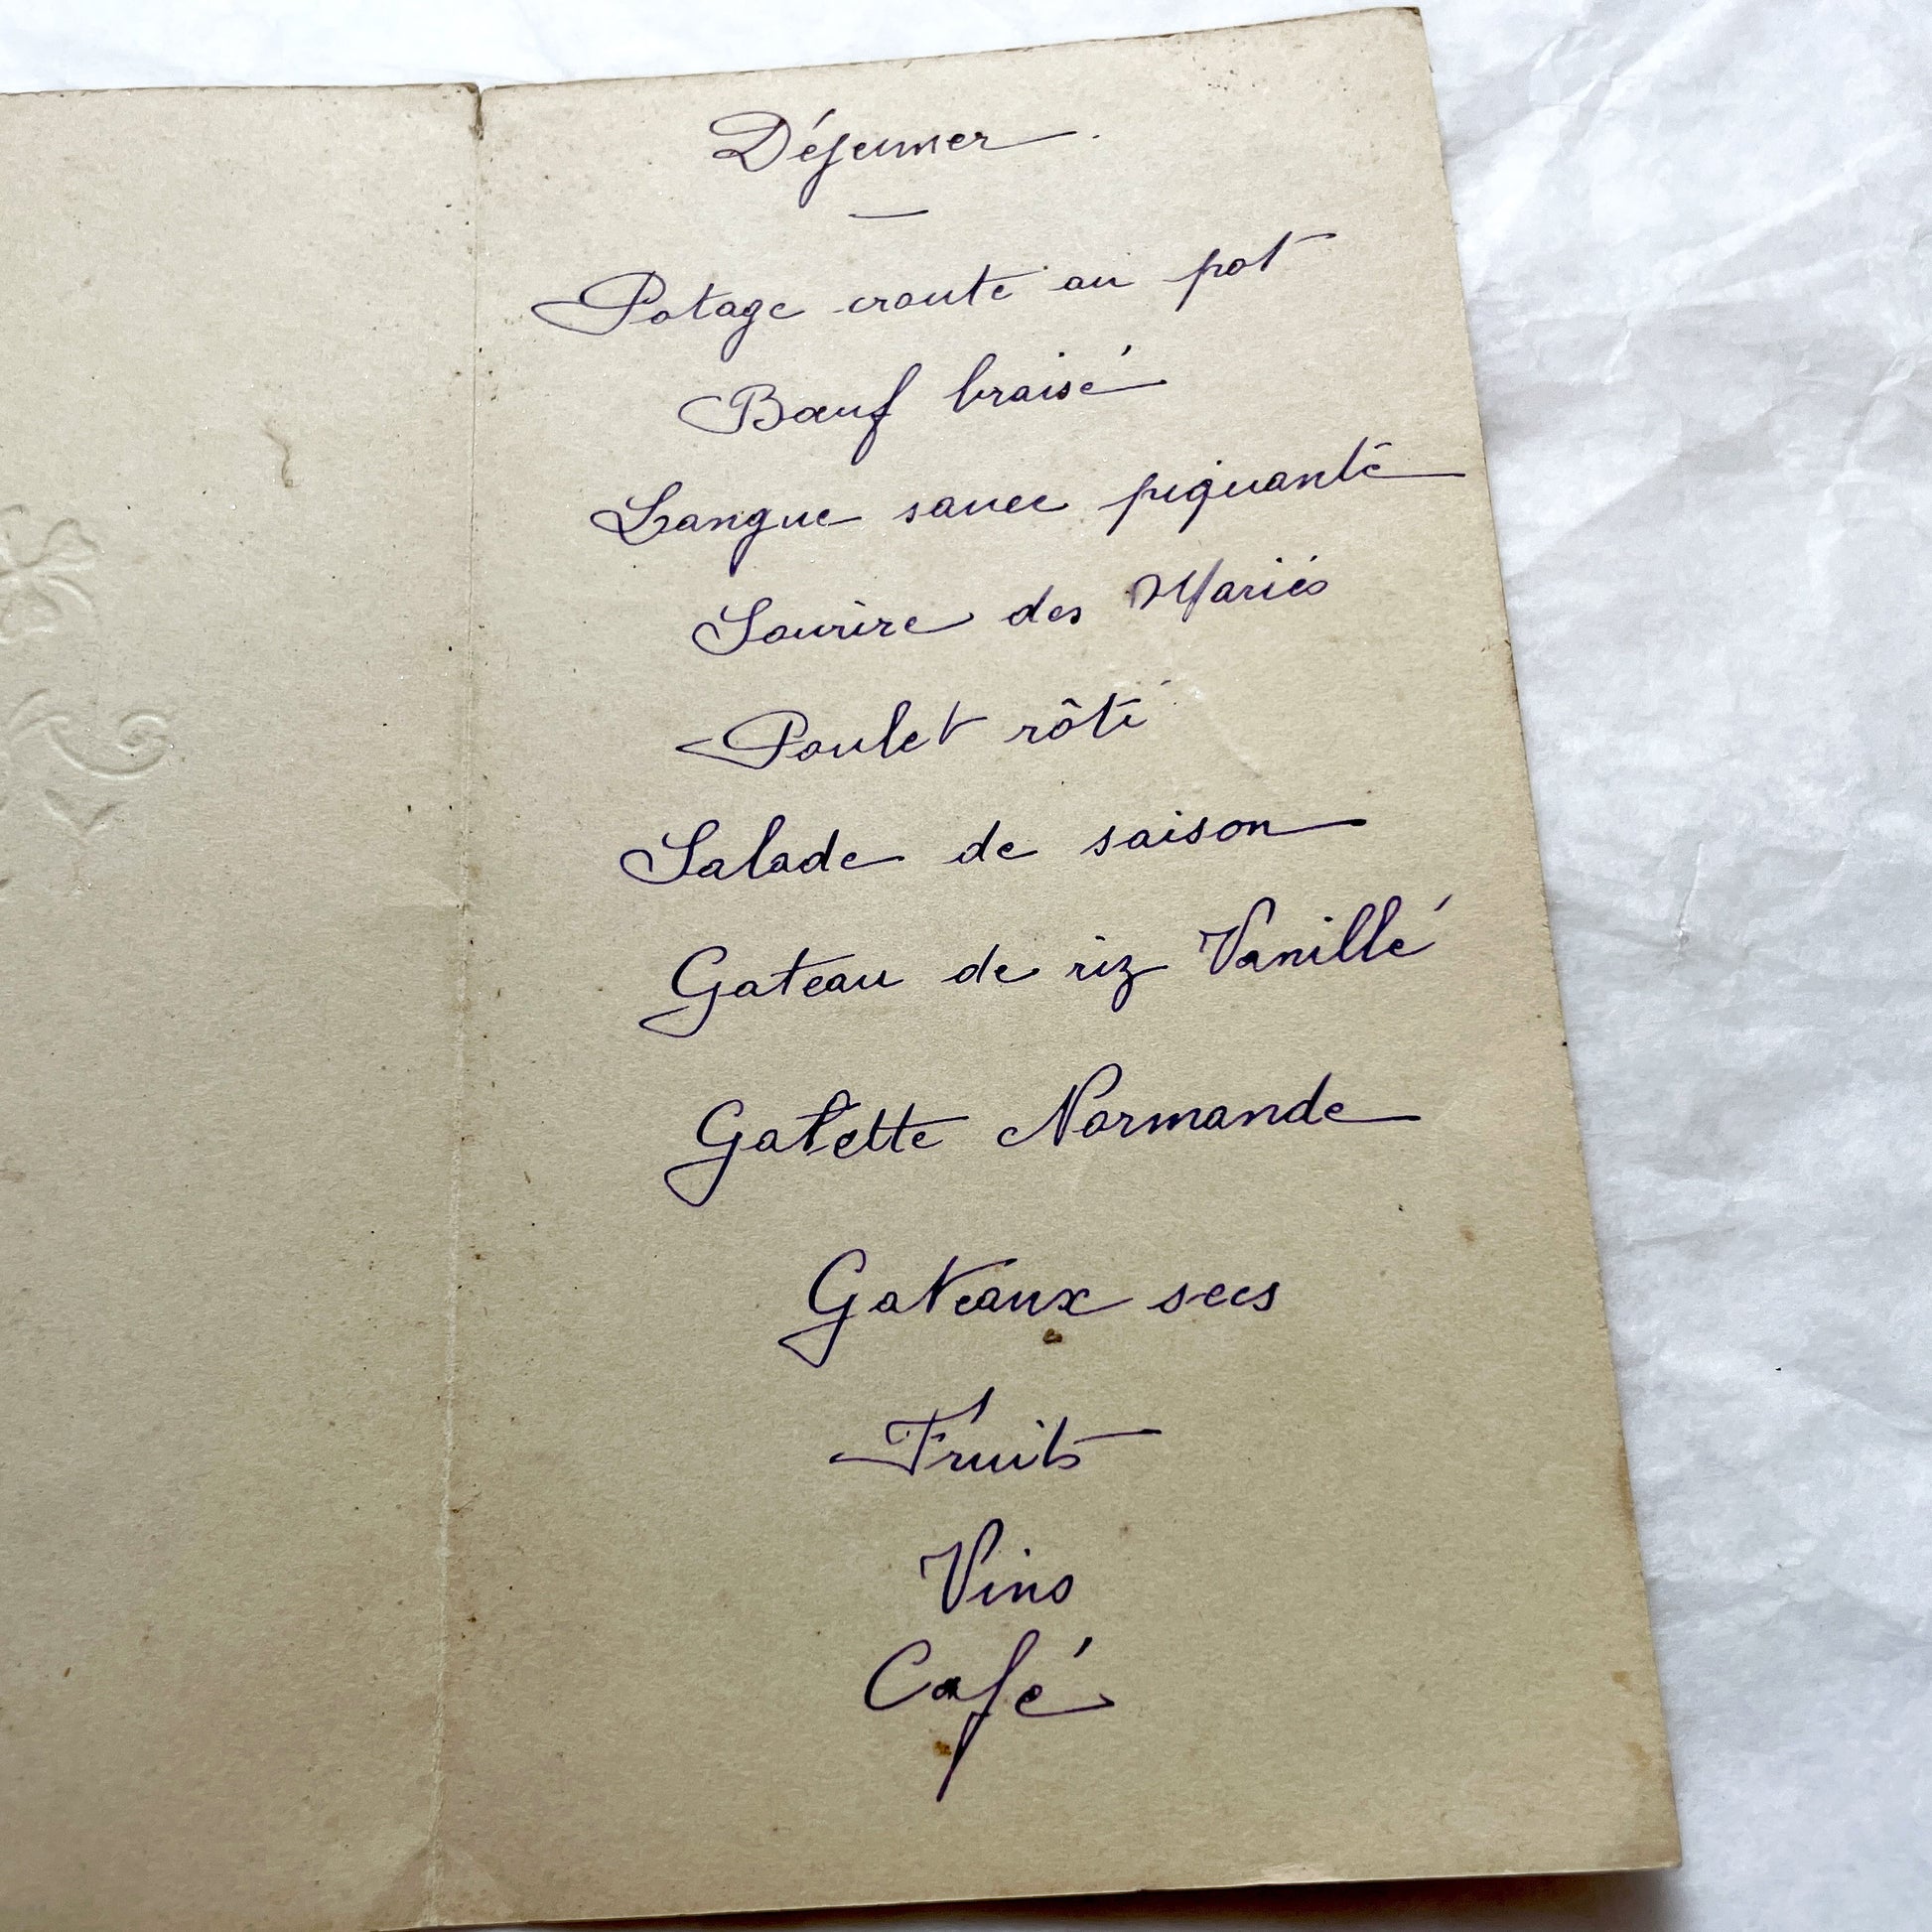 Déjeuner.
Potage croute au pot
Bœuf braisé
Langue sauce piquante
Sourire des Mariés
Poulet rôti
Salade de saison
Gateau de riz Vanillé
Galette Normande
Gateaux secs
Fruits
Vins
Café